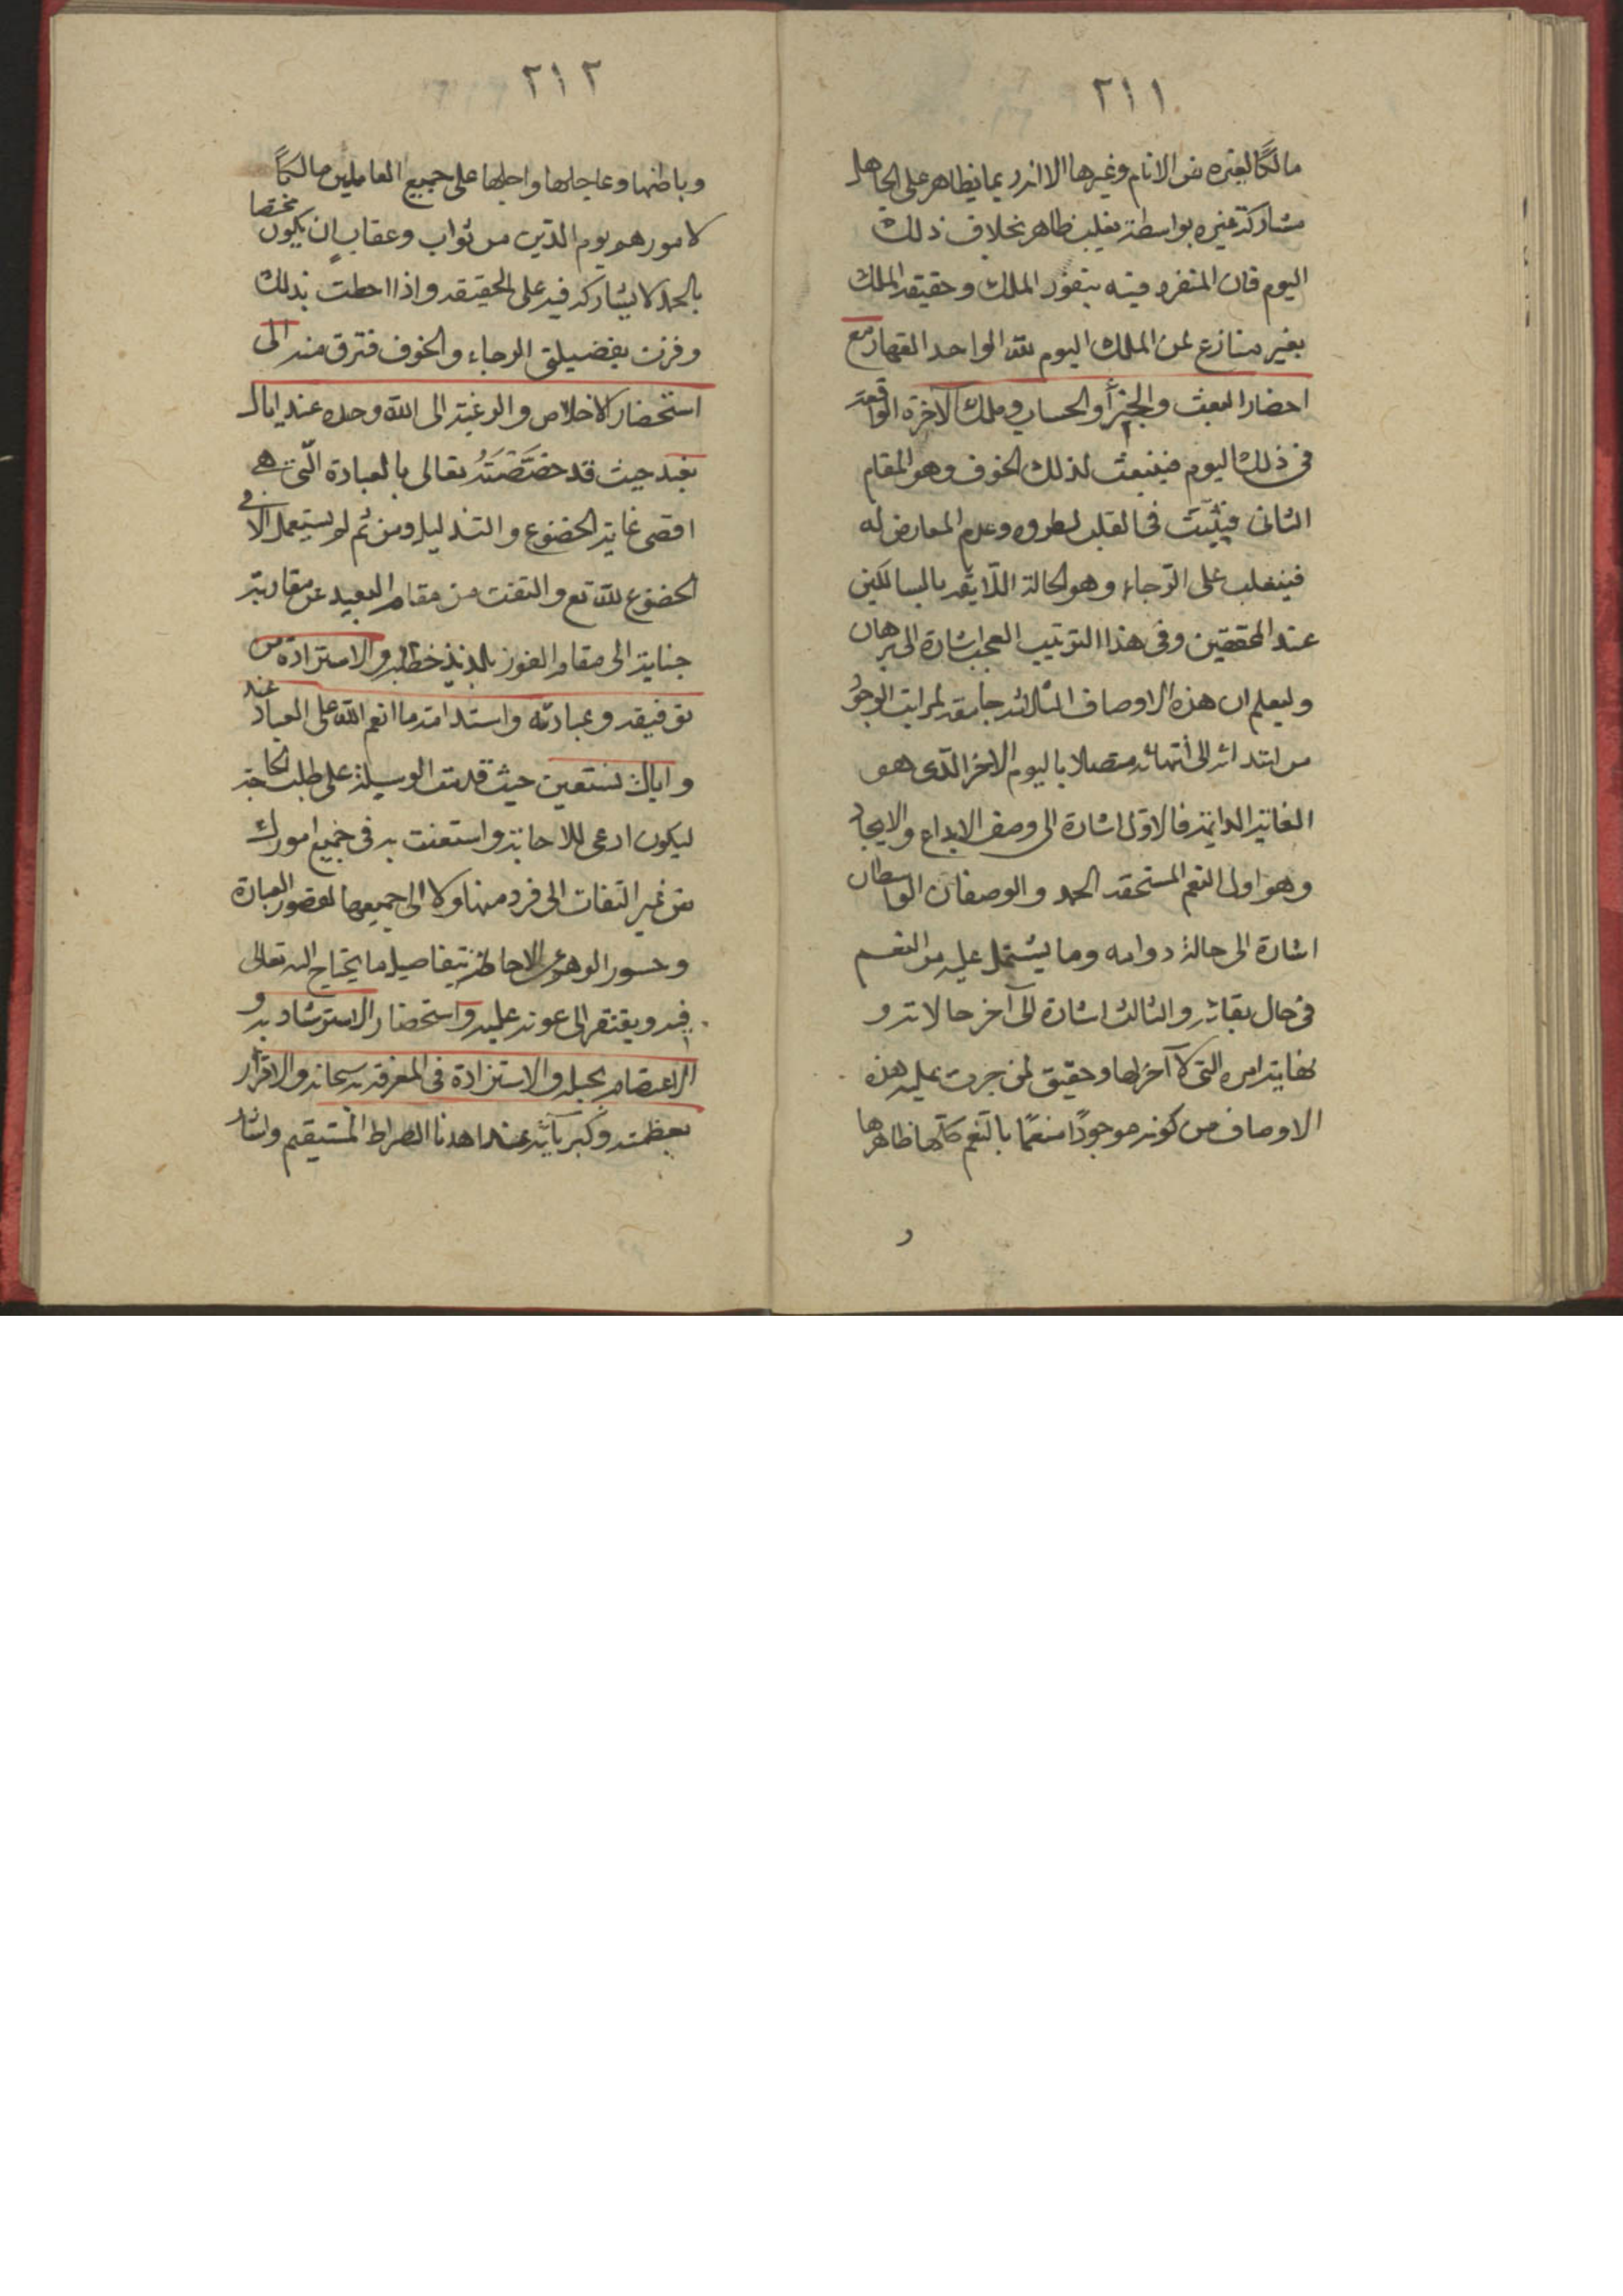 ٢١١
مالكًا لغيره من الانام وغيرها الا انه ربما يظاهر على الجاهل
مشاركة غيره بواسطة تغلب ظاهر بخلاف ذلك
اليوم فان المتفرد فيه بنفوذ الملك وحقيقه الملك
بغير منازع لمن الملك اليوم لله الواحد القهار مع
احضار البعث والجزأ والحساب وملك الاخرة الواقعة
فى ذلك اليوم فينبعث لذلك الخوف وهو المقام
الثانى فيثبت فى القلب لطروه وعدم المعارض له
فينغلب على الرّجاء وهو الحالة اللّايقه بالسالكين
عند المحققين وفى هذا الترتيب العجب اشارة الى برهان
وليعلم ان هذه الاوصاف الثلاثه جامعه لمراتب الوجوُد
من ابتدائه الى أنتهائه متصلا باليوم الاخر الّذى هو
الغاية الدايمة فالاوّل اشارة الى وصف الابداع والايجاد
وهو اول النعم المستحقه الحمد والوصفان الواسطان
اشارة الى حالة دوامه وما يشتمل عليه من النعم
فى حال بقائه والثالث اشارة الى آخر حالاته و
نهاية امره التى لا آخر لها وحقيق لمن جرت عليه هذه
الاوصاف من كونه موجودًا منعمًا بالنّعم كلّها ظاهرها
و
٢١٢
وباطنها وعاجلها واجلها على جميع العاملين مالكًا
لامورهم يوم الدّين من ثواب وعقابٍ ان يكون مختصا
بالحمد لا يشاركه فيه على الحقيقه واذا احطت بذلك
وفزت بفضيلتى الرجاء والخوف فترق منه الى
استحضار الاخلاص والرغبة الى الله وحده عند اياك
نعبد حيث قد خصَّصَتَهُ تعالى بالعبادة الّتى هى
اقصى غاية الخضوع والتذليل ومن ثم لو يستعمل الا فى
الخضوع لله تع والتفت من مقام البعيد عن مقاربة
جنابة الى مقام الفوز بلذيذ خطابه والاستزادة من
توفيقه وعبادته واستدامة ما انعم الله على العباد عند
واياك نستعين حيث قدمت الوسيلة على طلب الحاجة
ليكون ادعى للاجابة واستعنت به فى جميع امورك
من غير التفات الى فرد منها ولا الى جميعها لقصور العبارة
وحسور الوهم عن الاحاطة بتفاصيل ما يحتاج اليه تعالى
فيه ويفتقر الى عونه عليه واستحضار الاسترشاد به و
الاعتصام بحبله والاستزادة فى المعرفه به سبحانه والاقرار
بعظمته وكبريآئه عند اهدنا الصراط المستيقم واشار